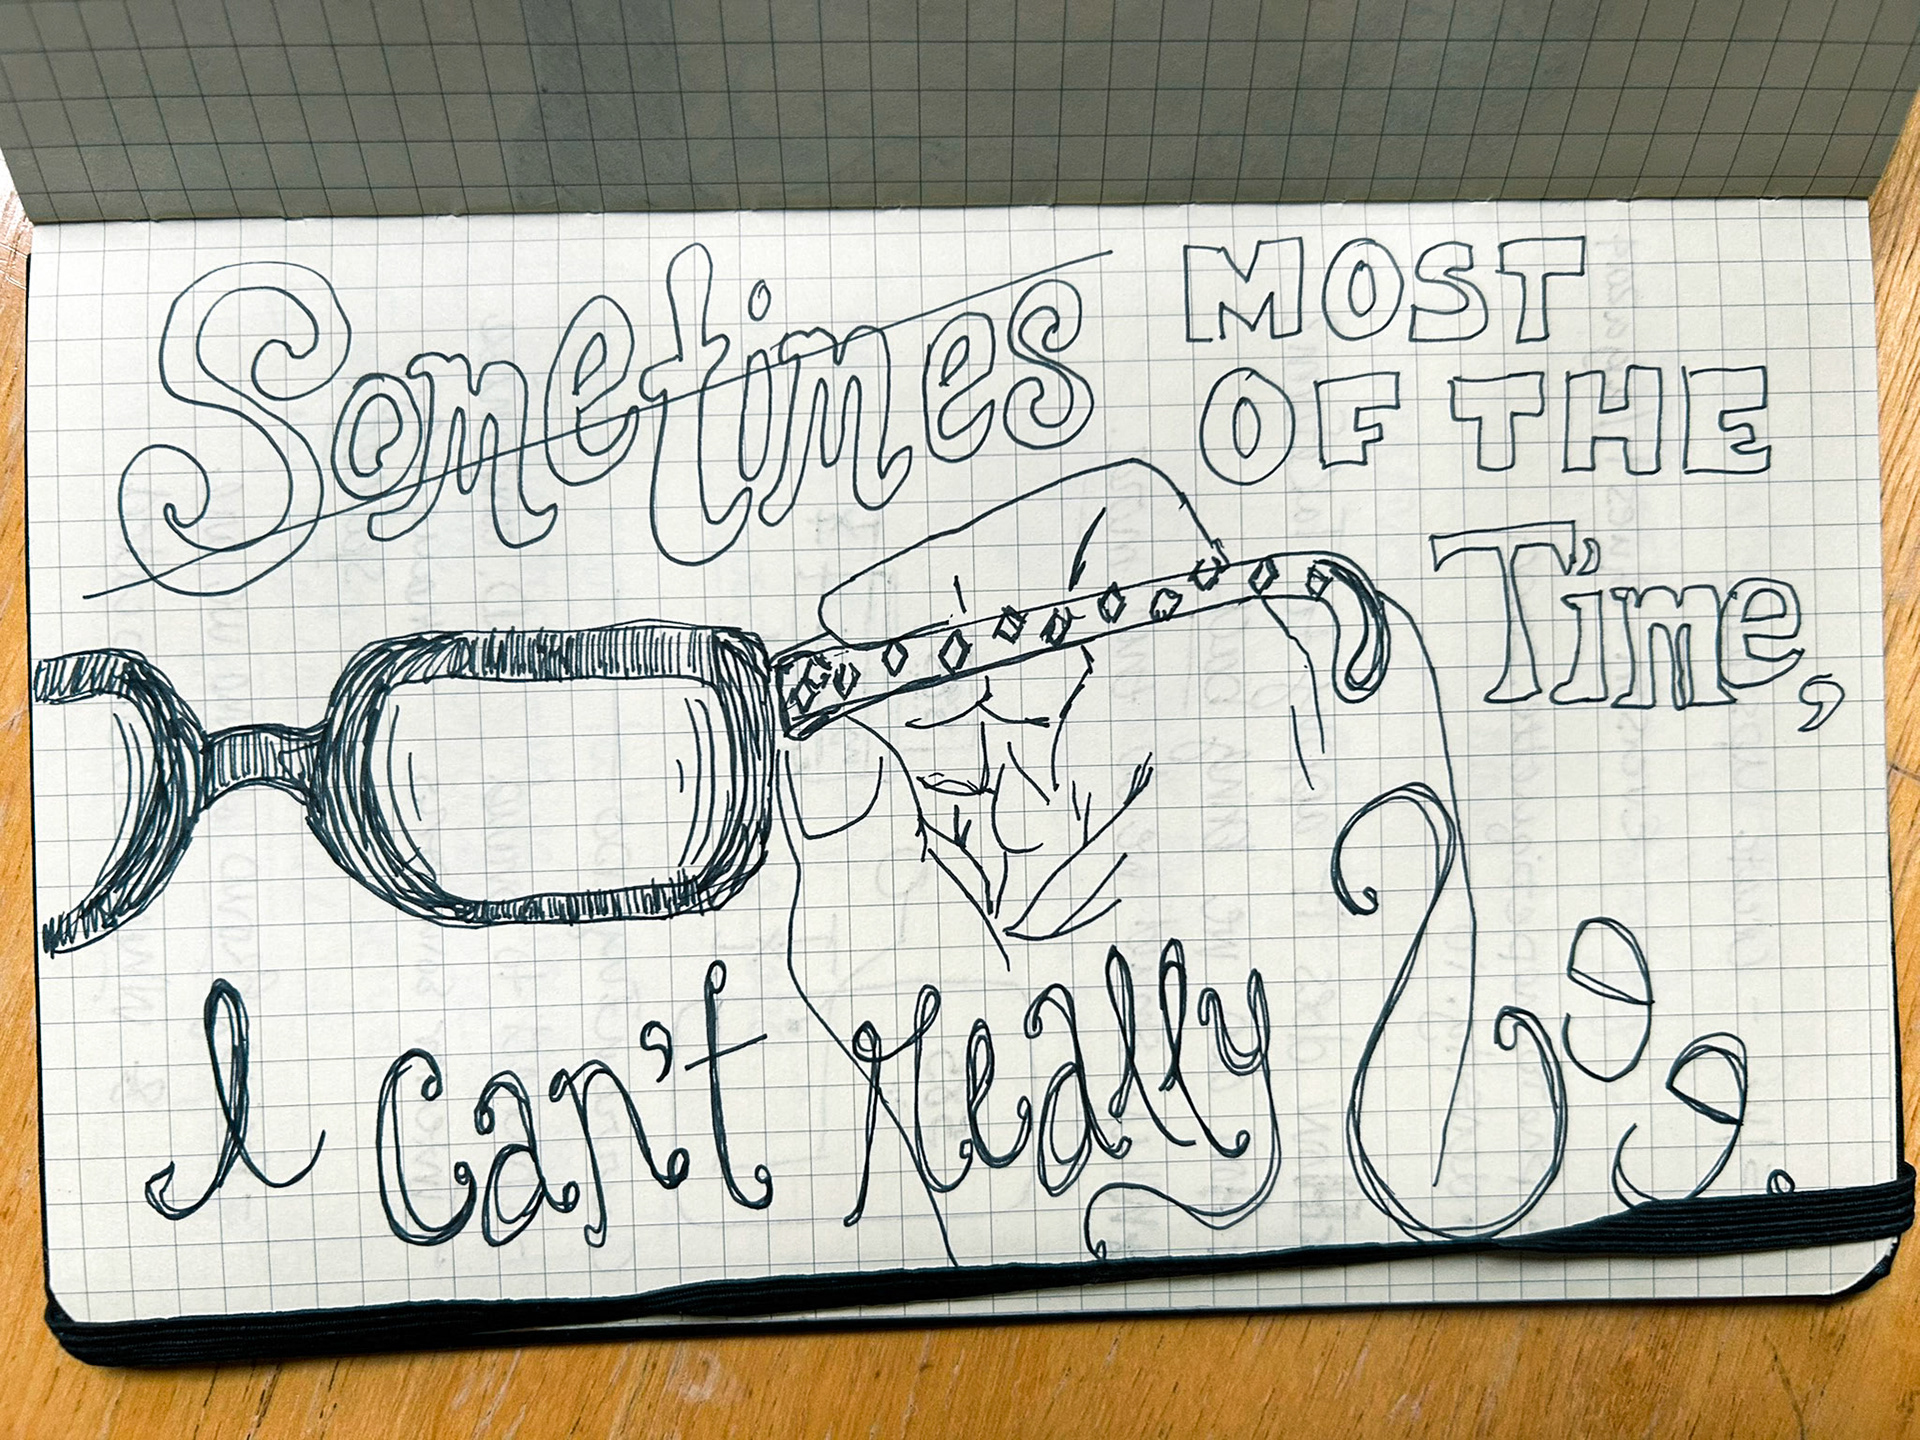 Sometimes
MOST
OF THE
Time,
I can't really
See.